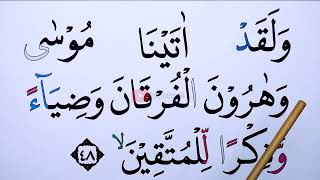 وَلَقَدْ اٰتَيْنَا مُوْسٰى
وَهٰرُوْنَ الْفُرْقَانَ وَضِيَآءً
وَّذِكْرًا لِّلْمُتَّقِيْنَ ۙ ﴿٤٨﴾